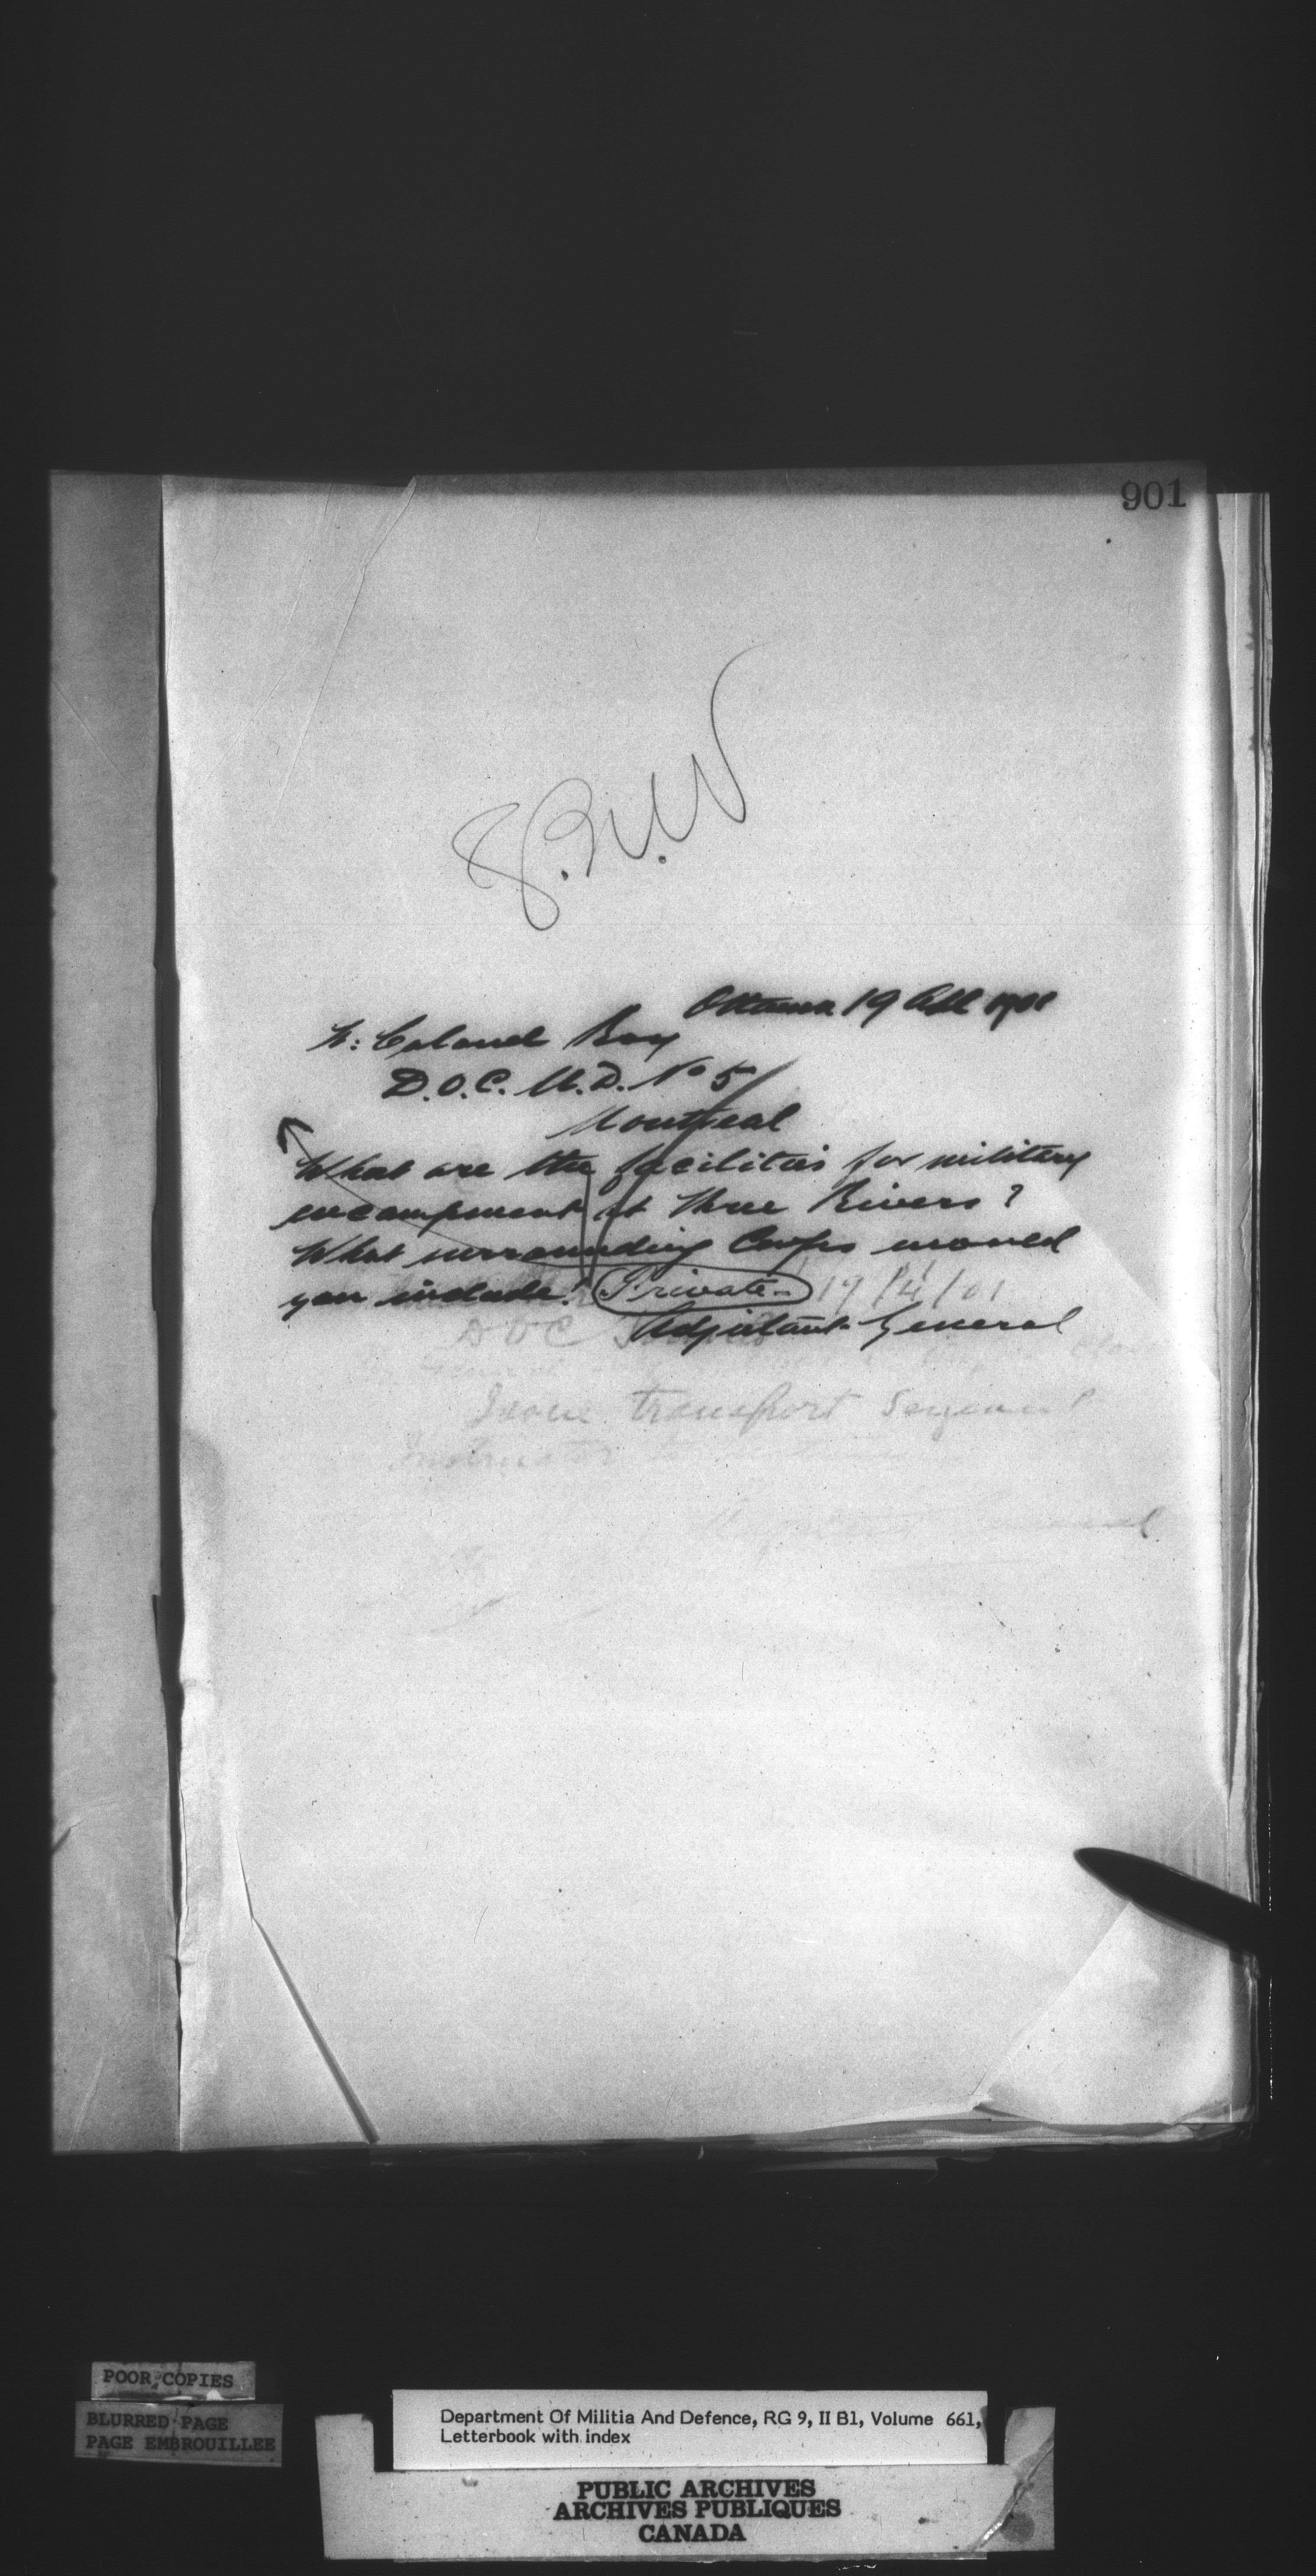 901
Ottawa 19 Apl 1901
Lt: Colonel Roy
D.O.C. M.D. No 5
Montreal
What are the facilities for military
encampment at Three Rivers?
What surrounding Corps would
you include? Private -
19/4/01
Adjutant-General
D O C
Issue transport Sergeant
Instructor
POOR COPIES
BLURRED PAGE
PAGE EMBROUILLEE
Department Of Militia And Defence, RG 9, II B1, Volume 661,
Letterbook with index
PUBLIC ARCHIVES
ARCHIVES PUBLIQUES
CANADA